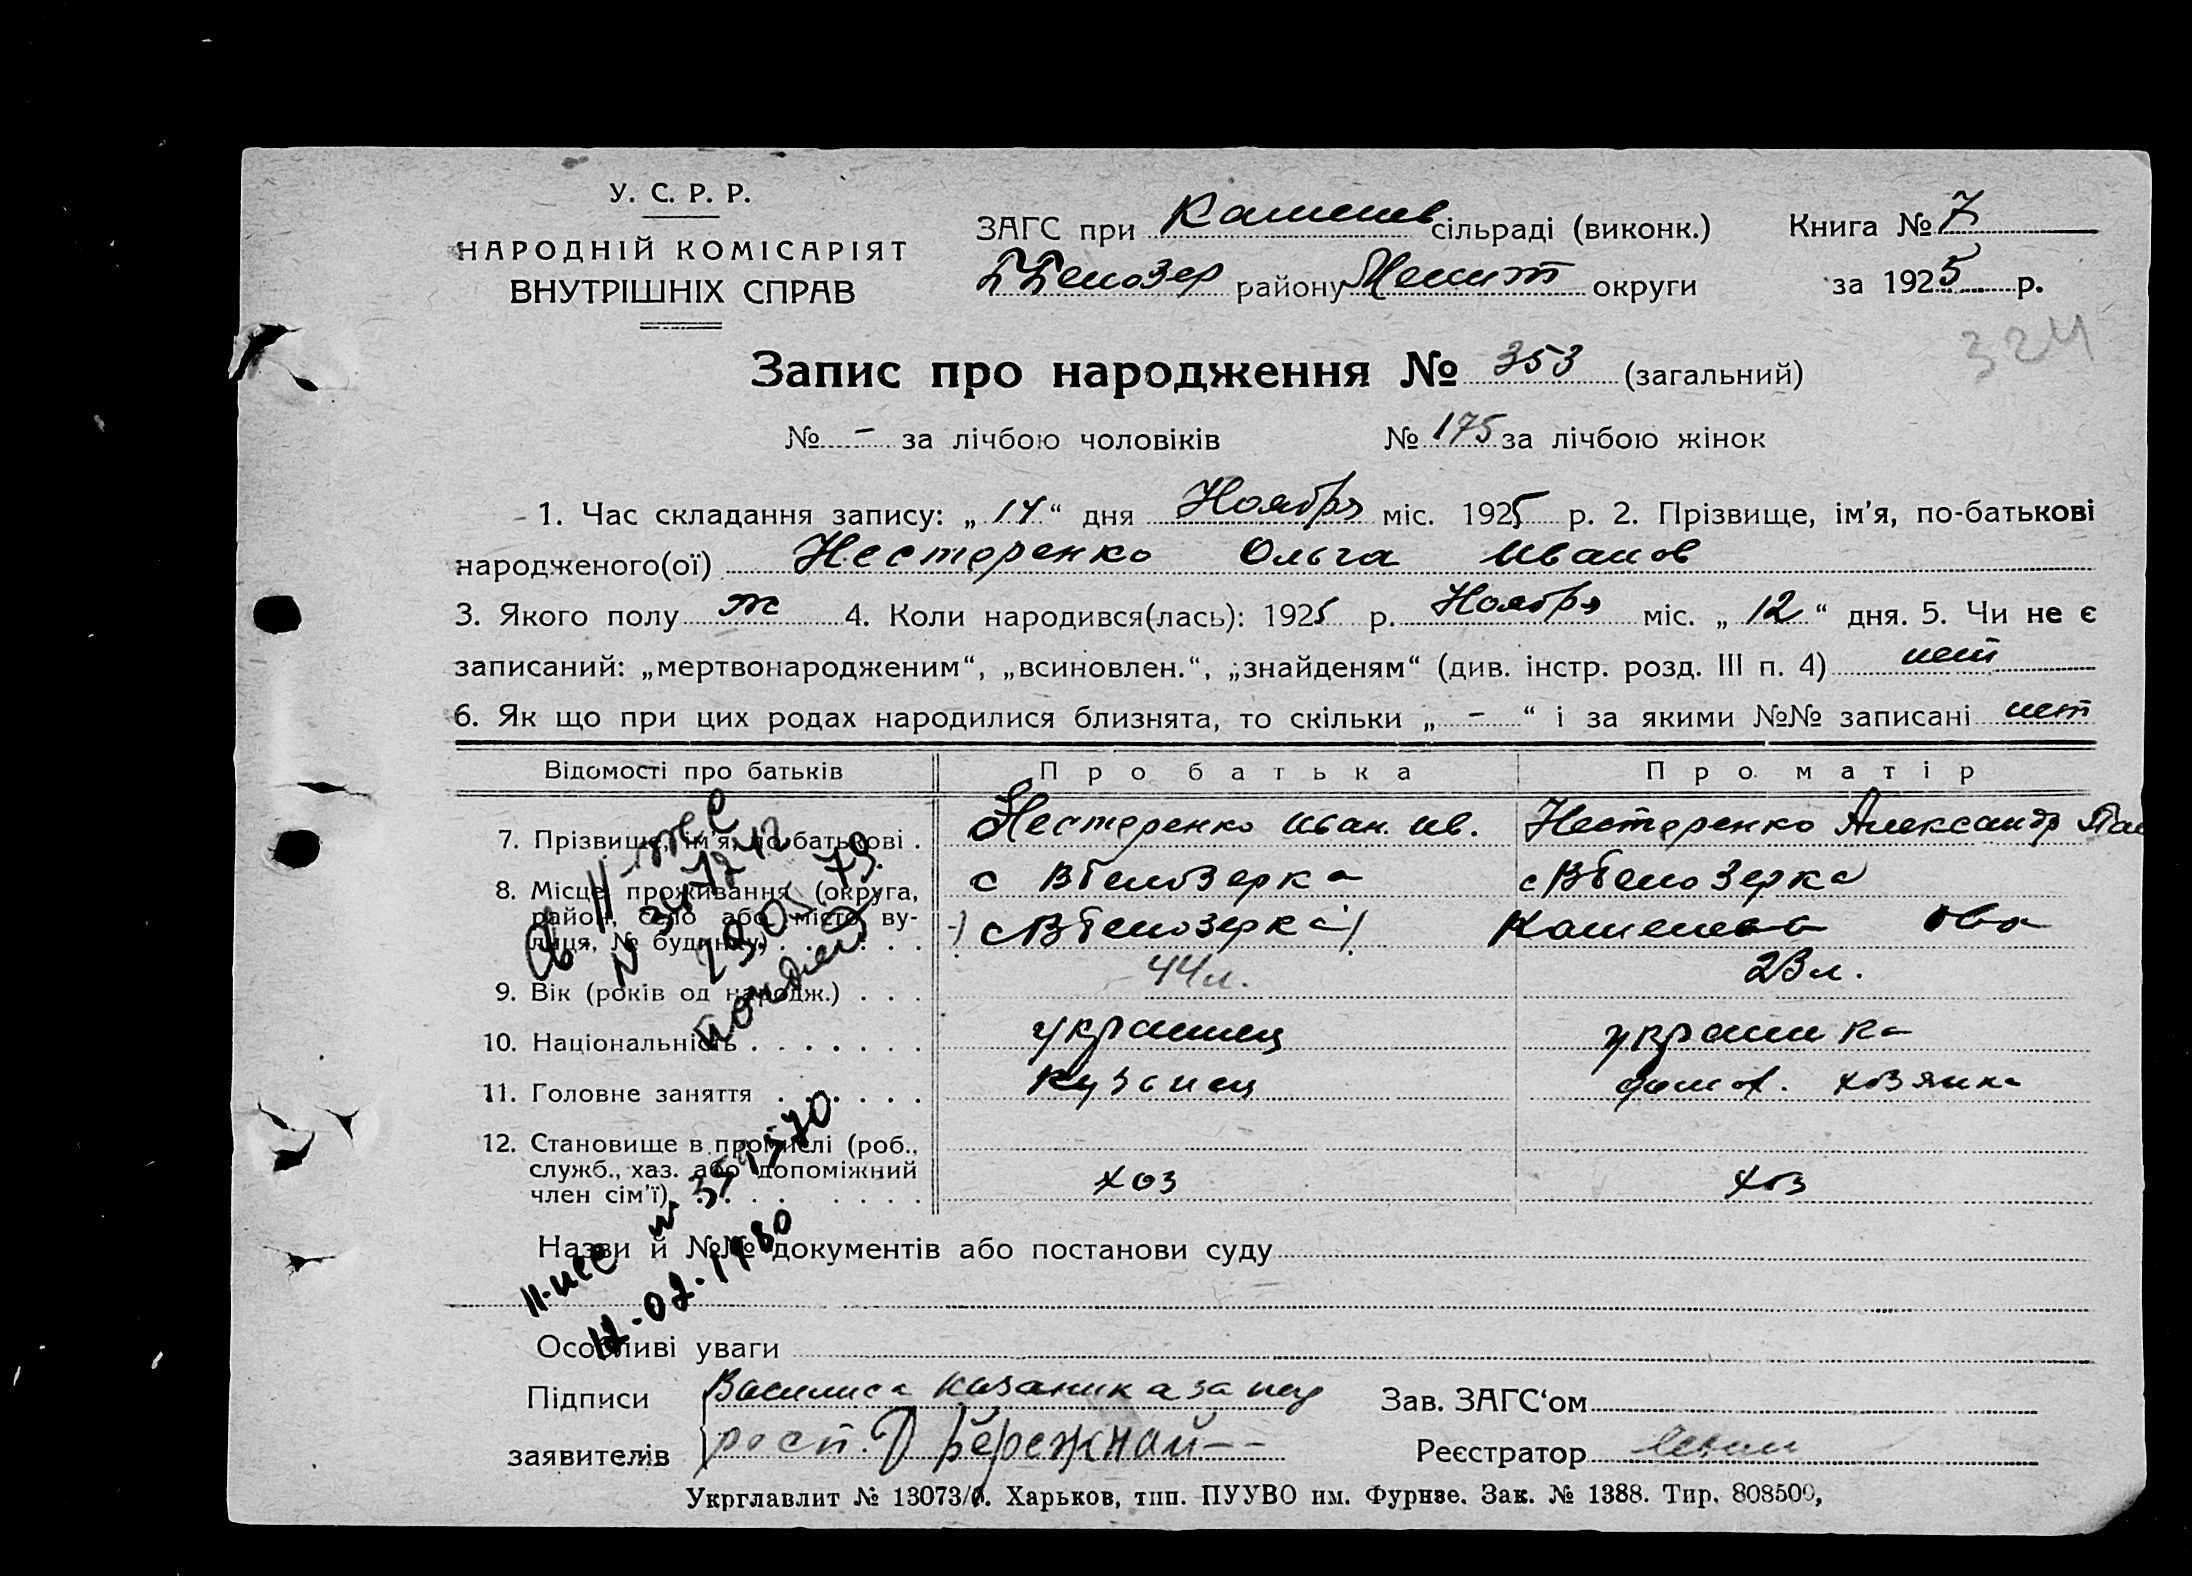 У. С. Р. Р.
НАРОДНІЙ КОМІСАРІЯТ
ВНУТРІШНІХ СПРАВ
ЗАГС при Каменев сільраді (виконк.) Книга № 7
району Мелит округи за 1925 р.
324
Запис про народження № 353 (загальний)
№ - за лічбою чоловіків № 175 за лічбою жінок
1. Час складання запису: „14“ дня Ноября міс. 1925 р. 2. Прізвище, ім'я, по-батькові
народженого(ої) Нестеренко Ольга Иванов
3. Якого полу ж 4. Коли народився(лась): 1925 р. Ноября міс. „12“ дня. 5. Чи не є
записаний: „мертвонародженим“, „всиновлен.“, „знайденям“ (див. інстр. розд. III п. 4) нет
6. Як що при цих родах народилися близнята, то скільки „ - “ і за якими №№ записані нет
Відомості про батьків Про батька Про матір
7. Прізвище, ім'я, по-батькові . Нестеренко Иван. Ив. Нестеренко Александр
8. Місце проживання (округа, с ВБелозерка с ВБелозерка
район, село або місто ву-
лиця, № будинку) . . . . . . с ВБелозерка
9. Вік (років од народж.) . . . 44 л. 23 л.
10. Національність . . . . . . . украинец украинка
11. Головне заняття . . . . . . Кузнец домаш. хозяйка
12. Становище в промислі (роб.,
служб., хаз. або допоміжний
член сім'ї) . . . . . . . . хоз хоз
Назви й №№ документів або постанови суду
Особливі уваги
Підписи Василиса Зав. ЗАГС‘ом
заявителів Бережной Реєстратор
Укрглавлит № 13073/б. Харьков, тип. ПУУВО им. Фрунзе. Зак. № 1388. Тир. 808500,